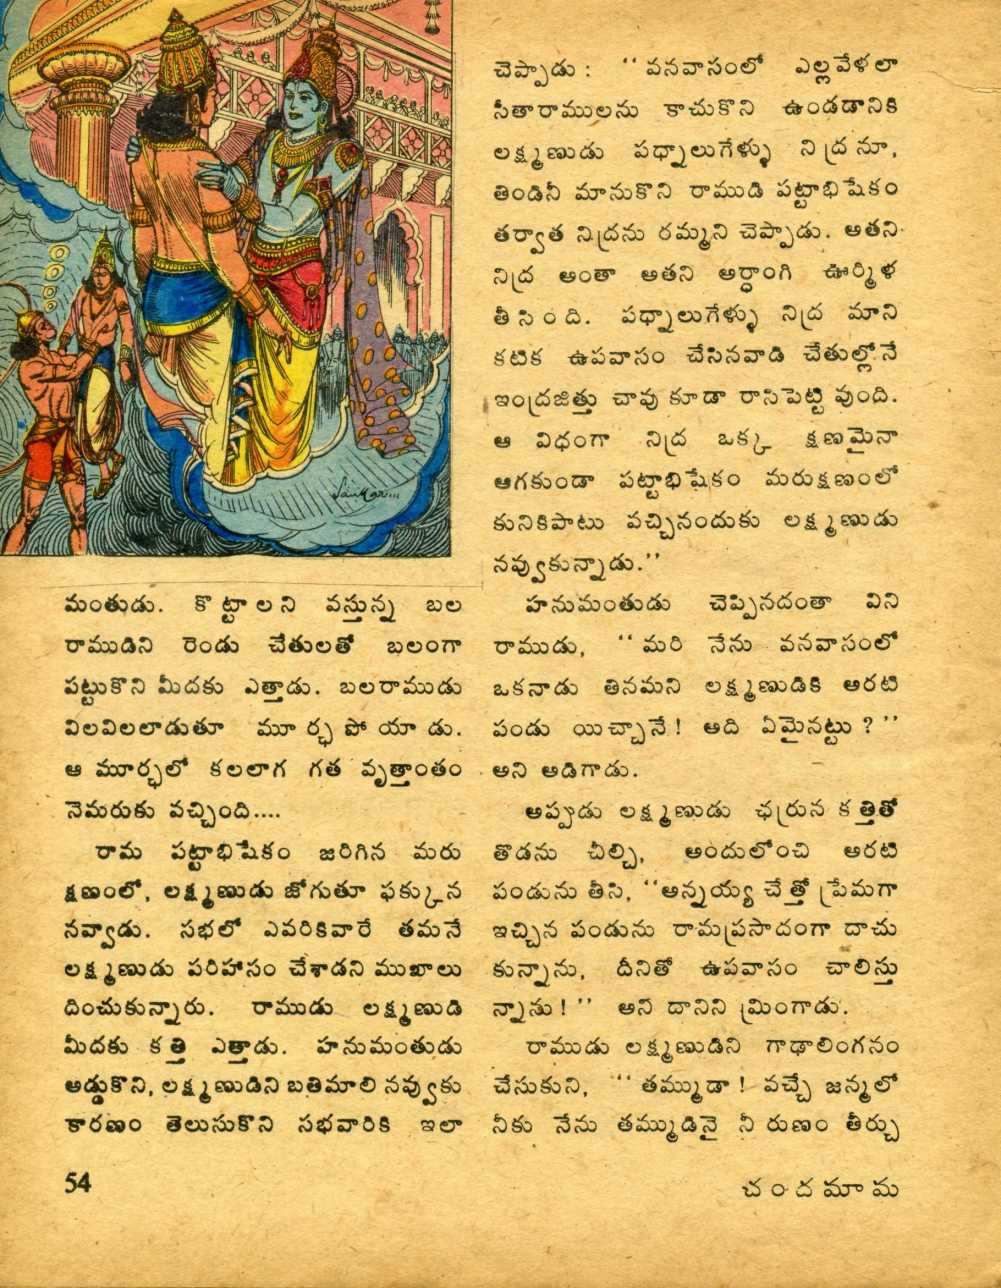 మంతుడు. కొట్టాలని వస్తున్న బల
రాముడిని రెండు చేతులతో బలంగా
పట్టుకొని మీదకు ఎత్తాడు. బలరాముడు
విలవిలలాడుతూ మూర్ఛ పోయాడు.
ఆ మూర్ఛలో కలలాగ గత వృత్తాంతం
నెమరుకు వచ్చింది....
రామ పట్టాభిషేకం జరిగిన మరు
క్షణంలో, లక్ష్మణుడు జోగుతూ ఫక్కున
నవ్వాడు. సభలో ఎవరికివారే తమనే
లక్ష్మణుడు పరిహాసం చేశాడని ముఖాలు
దించుకున్నారు. రాముడు లక్ష్మణుడి
మీదకు కత్తి ఎత్తాడు. హనుమంతుడు
అడ్డుకొని, లక్ష్మణుడిని బతిమాలి నవ్వుకు
కారణం తెలుసుకొని సభవారికి ఇలా
చెప్పాడు : ‘‘వనవాసంలో ఎల్లవేళలా
సీతారాములను కాచుకొని ఉండడానికి
లక్ష్మణుడు పధ్నాలుగేళ్ళు నిద్రనూ,
తిండినీ మానుకొని రాముడి పట్టాభిషేకం
తర్వాత నిద్రను రమ్మని చెప్పాడు. అతని
నిద్ర అంతా అతని అర్ధాంగి ఊర్మిళ
తీసింది. పధ్నాలుగేళ్ళు నిద్ర మాని
కటిక ఉపవాసం చేసినవాడి చేతుల్లోనే
ఇంద్రజిత్తు చావు కూడా రాసిపెట్టి వుంది.
ఆ విధంగా నిద్ర ఒక్క క్షణమైనా
ఆగకుండా పట్టాభిషేకం మరుక్షణంలో
కునికిపాటు వచ్చినందుకు లక్ష్మణుడు
నవ్వుకున్నాడు.’’
హనుమంతుడు చెప్పినదంతా విని
రాముడు, ‘‘మరి నేను వనవాసంలో
ఒకనాడు తినమని లక్ష్మణుడికి అరటి
పండు యిచ్చానే! అది ఏమైనట్టు ?’’
అని అడిగాడు.
అప్పుడు లక్ష్మణుడు ఛర్రున కత్తితో
తొడను చీల్చి, అందులోంచి అరటి
పండును తీసి, ‘‘అన్నయ్య చేత్తో ప్రేమగా
ఇచ్చిన పండును రామప్రసాదంగా దాచు
కున్నాను, దీనితో ఉపవాసం చాలిస్తు
న్నాను!’’ అని దానిని మ్రింగాడు.
రాముడు లక్ష్మణుడిని గాఢాలింగనం
చేసుకుని, ‘‘తమ్ముడా! వచ్చే జన్మలో
నీకు నేను తమ్ముడినై నీ రుణం తీర్చు
54
చందమామ
Sankar...